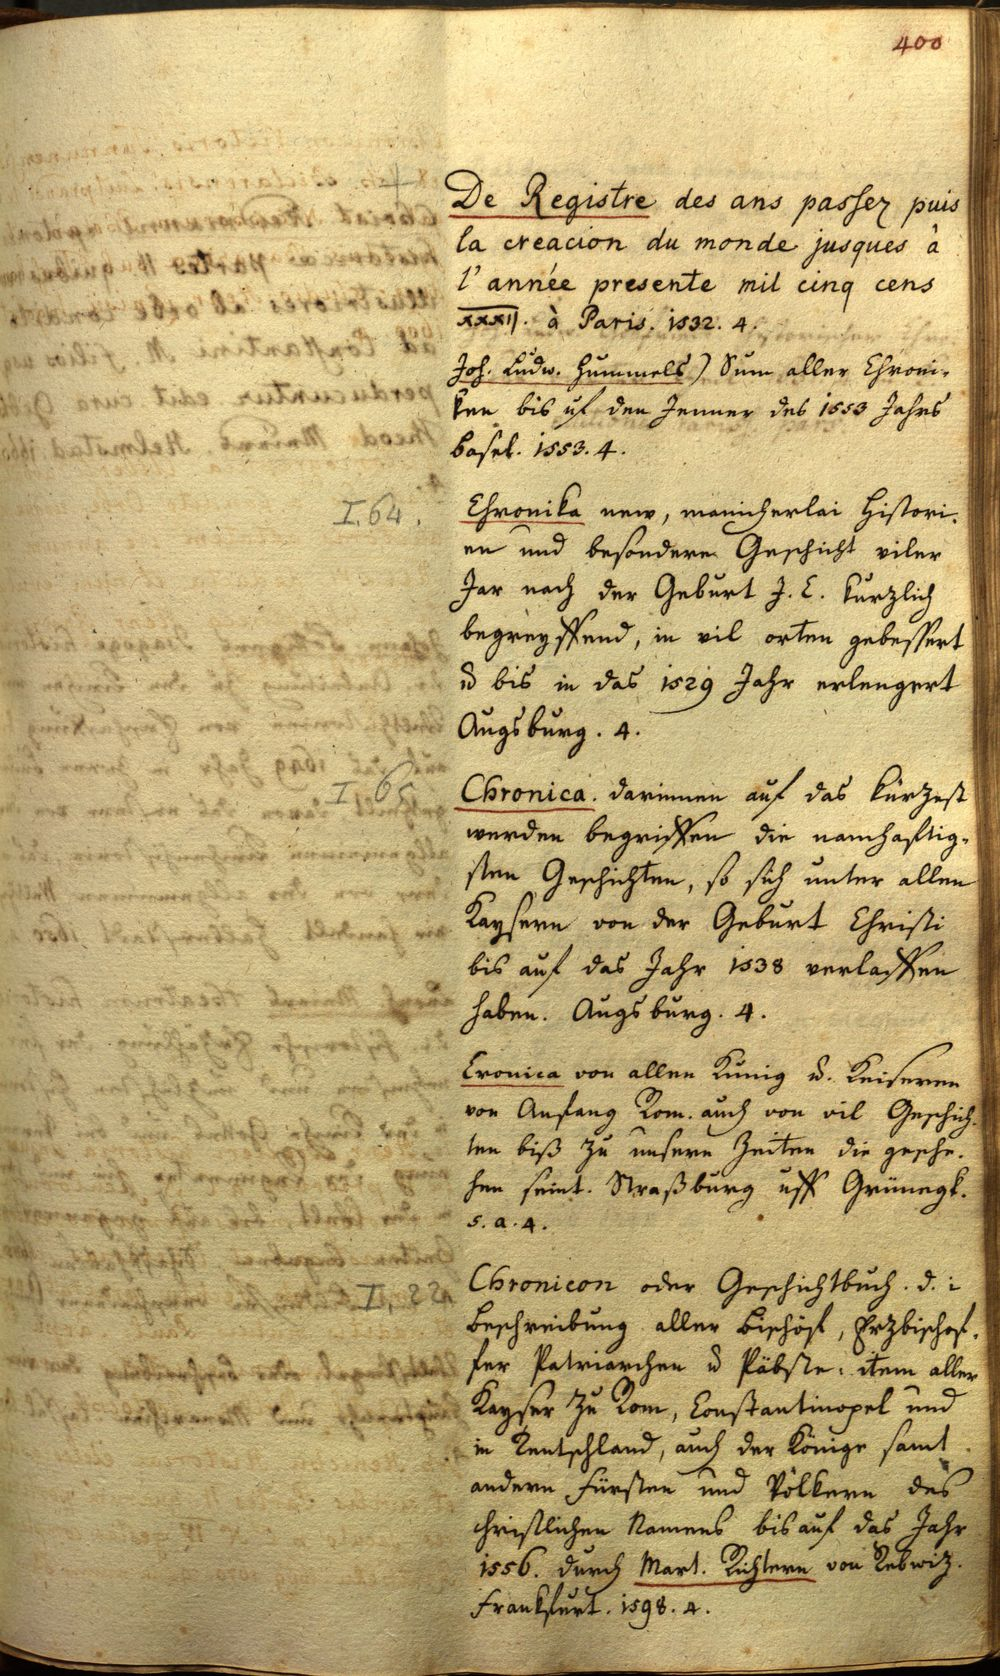 400
De Registre des ans passez puis
la creacion du monde jusques à
l'année presente mil cinq cens
xxxij. à Paris. 1532. 4.
Joh. Ludw. Hummels) Sum aller Chroni-
ken bis uf den Jenner des 1553 Jahrs
Basel. 1553. 4.
I. 64.
Chronika new, manicherlai Histori-
en und besondere Geschicht viler
Jar nach der Geburt J. C. kurzlich
begreyffend, in vil orten gebessert
u bis in das 1529 Jahr erlengert
Augsburg. 4.
I 65
Chronica. darinnen auf das kürzest
werden begriffen die namhafftig-
sten Geschichten, so sich unter allen
Kaysern von der Geburt Christi
bis auf das Jahr 1538 verlaffen
haben. Augsburg. 4.
Cronica von allen Künig u. Keiseren
von Anfang Rom. auch von vil Geschich-
ten biß zu unsern Zeiten die gesche-
hen seint. Straßburg uff Grünegk.
s. a. 4.
I,
Chronicon oder Geschichtbuch. d. i
Beschreibung aller Bischöf, Erzbischof-
fer Patriarchen u Päbste: item aller
Kayser zu Rom, Constantinopel und
in Teutschland, auch der Könige samt
andern Fürsten und Völkern des
christlichen Namens bis auf das Jahr
1556. durch Mart. Richtern von Rebwiz.
Frankfurt. 1598. 4.